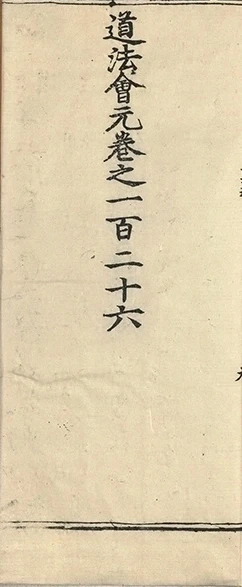 道法會元卷之一百二十六